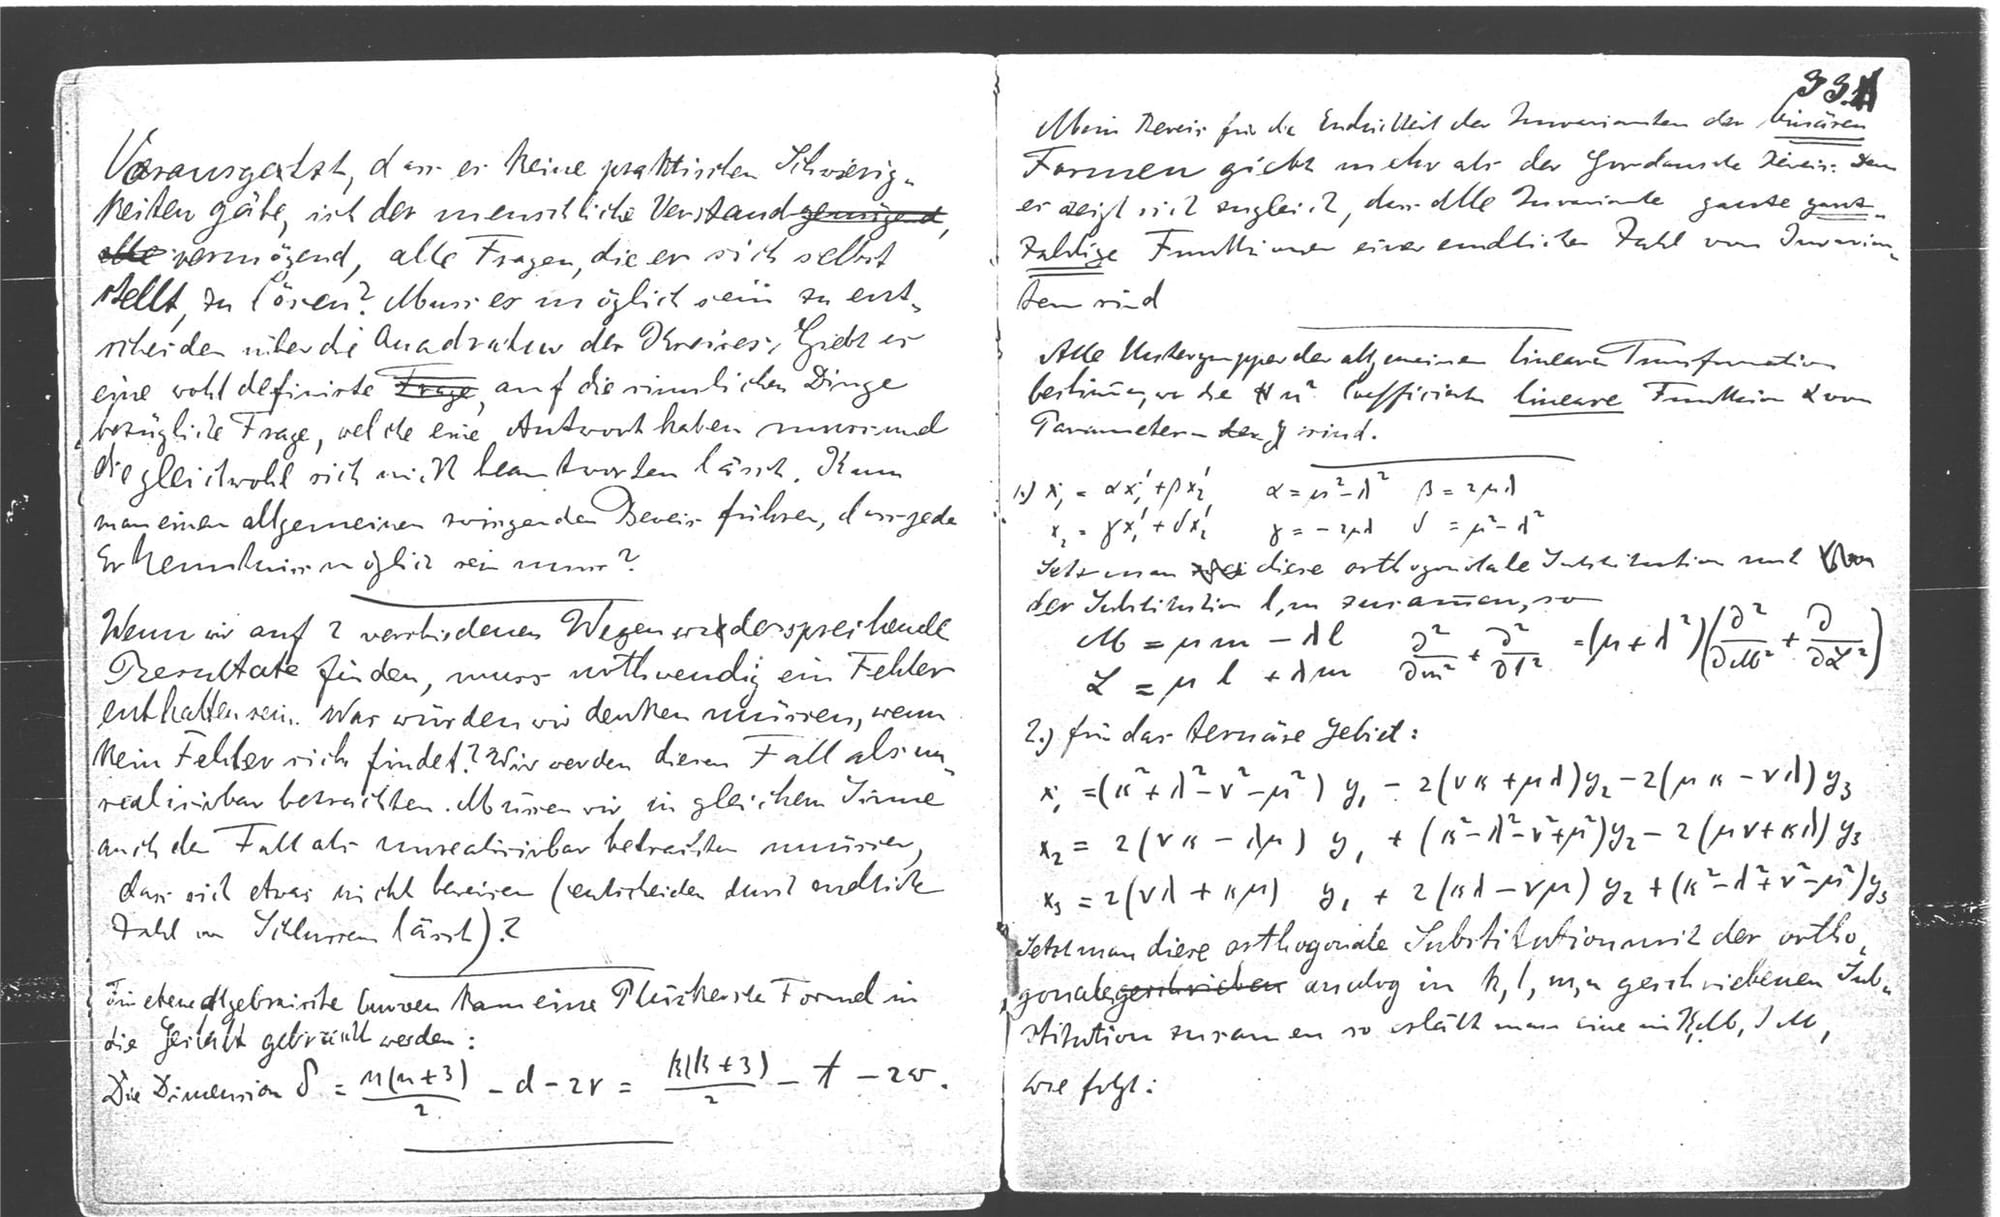 Vorausgesetzt, dass es keine praktischen Schwierig-
keiten gäbe, ist der menschliche Verstand genügend,
alle vermögend, alle Fragen, die er sich selbst
stellt, zu lösen? Muss es möglich sein zu ent-
scheiden über die Quadratur des Kreises, Giebt es
eine wohl definirte Frage, auf die sinnlichen Dinge
bezügliche Frage, welche eine Antwort haben muss und
die gleichwohl sich nicht beantworten lässt. Kann
man einen allgemeinen zwingenden Beweis führen, dass jede
Erkenntniss möglich sein muss?
Wenn wir auf 2 verschiedenen Wegen widersprechende
Resultate finden, muss nothwendig ein Fehler
enthalten sein. Was würden wir denken müssen, wenn
kein Fehler sich findet? Wir werden diesen Fall als un-
realisirbar betrachten. Müssen wir in gleichem Sinne
auch den Fall als unrealisirbar betrachten müssen,
dass sich etwas nicht beweisen (entscheiden durch endliche
Zahl von Schlüssen lässt).?
Für ebene algebraische Curven kann eine Plückersche Formel in
die Gestalt gebracht werden:
Die Dimension δ = n(n+3)/2 - d - 2r = k(k+3)/2 - t - 2w.
33
Mein Beweis für die Endlichkeit der Invarianten der binären
Formen giebt mehr als der Gordansche Beweis: Denn
er zeigt sich zugleich, dass alle Invariante ganze ganz-
zahlige Funktionen einer endlichen Zahl von Invarian-
ten sind
Alle Untergruppen der allgemeinen linearen Transformation
bestimmen, wo die n² Coefficienten lineare Funktion von
Parametern sind.
1.) x₁ = αx₁' + βx₂' α = μ² - λ² β = 2μλ
x₂ = γx₁' + δx₂' γ = -2μλ δ = μ² - λ²
Setzt man diese orthogonale Substitution mit
der Substitution l, m zusammen, so
M = μm - λl ∂²/∂m² + ∂²/∂l² = (μ + λ²)(∂²/∂M² + ∂/∂L²)
L = μl + λm
2.) für das ternäre Gebiet:
x₁ = (κ² + λ² - ν² - μ²) y₁ - 2(νκ + μλ) y₂ - 2(μκ - νλ) y₃
x₂ = 2(νκ - λμ) y₁ + (κ² - λ² - ν² + μ²) y₂ - 2(μν + κλ) y₃
x₃ = 2(νλ + κμ) y₁ + 2(κλ - νμ) y₂ + (κ² - λ² + ν² - μ²) y₃
Setzt man diese orthogonale Substitution mit der ortho-
gonale geschrieben analog in k, l, m, n geschriebenen Sub-
stitution zusammen so erhält man eine in
wie folgt: